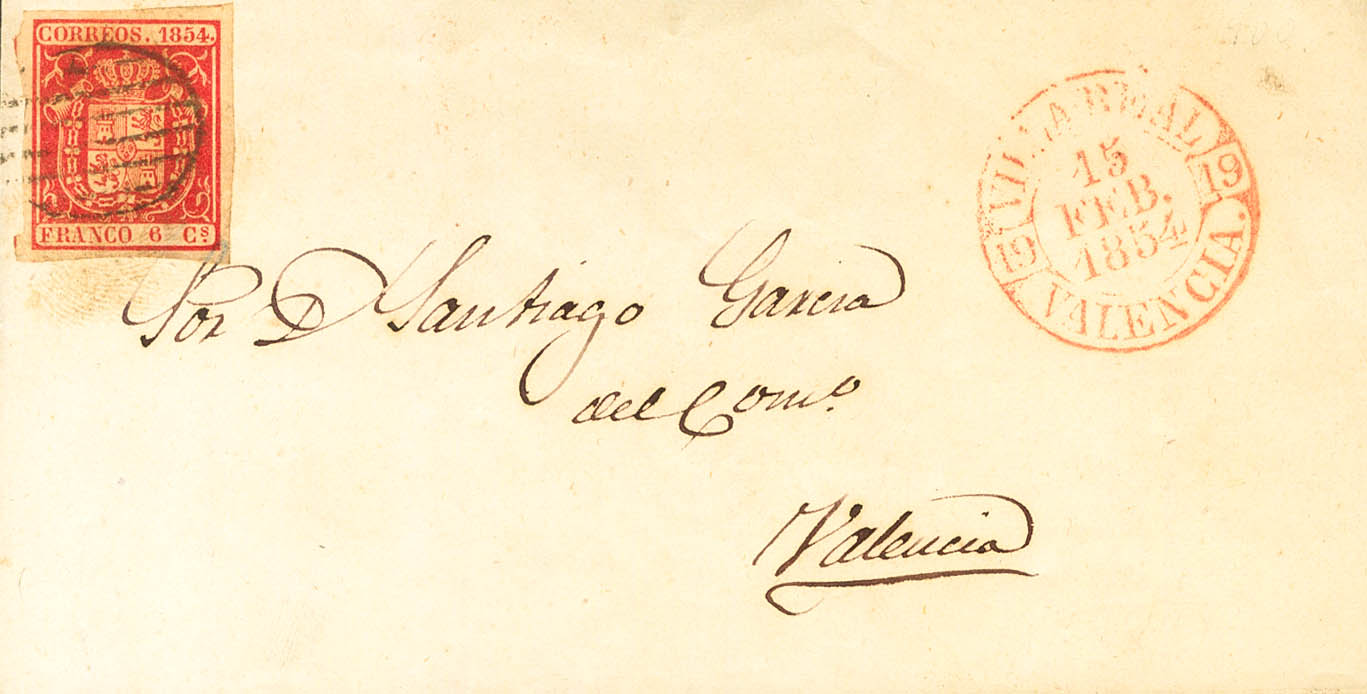 CORREOS. 1854.
FRANCO 6 Cs
VILLARREAL
19 19
15
FEB.
1854
VALENCIA.
Sor D Santiago Garcia
del Como.
Valencia